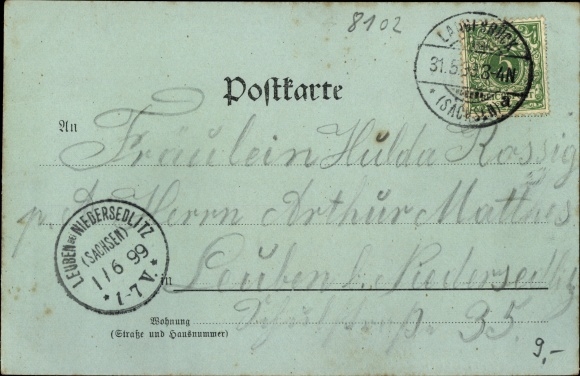 8102
LANGEBRÜCK
31.5.99 3-4N
* (SACHSEN) *
Postkarte
An Fräulein Hulda Rossig
p. A. Herrn Arthur Mattus
LEUBEN BEI NIEDERSEDLITZ
(SACHSEN)
1/6 99
* 1-7 V. *
in Leuben b. Niedersedlitz
Wohnung
(Straße und Hausnummer)
35.
9,-